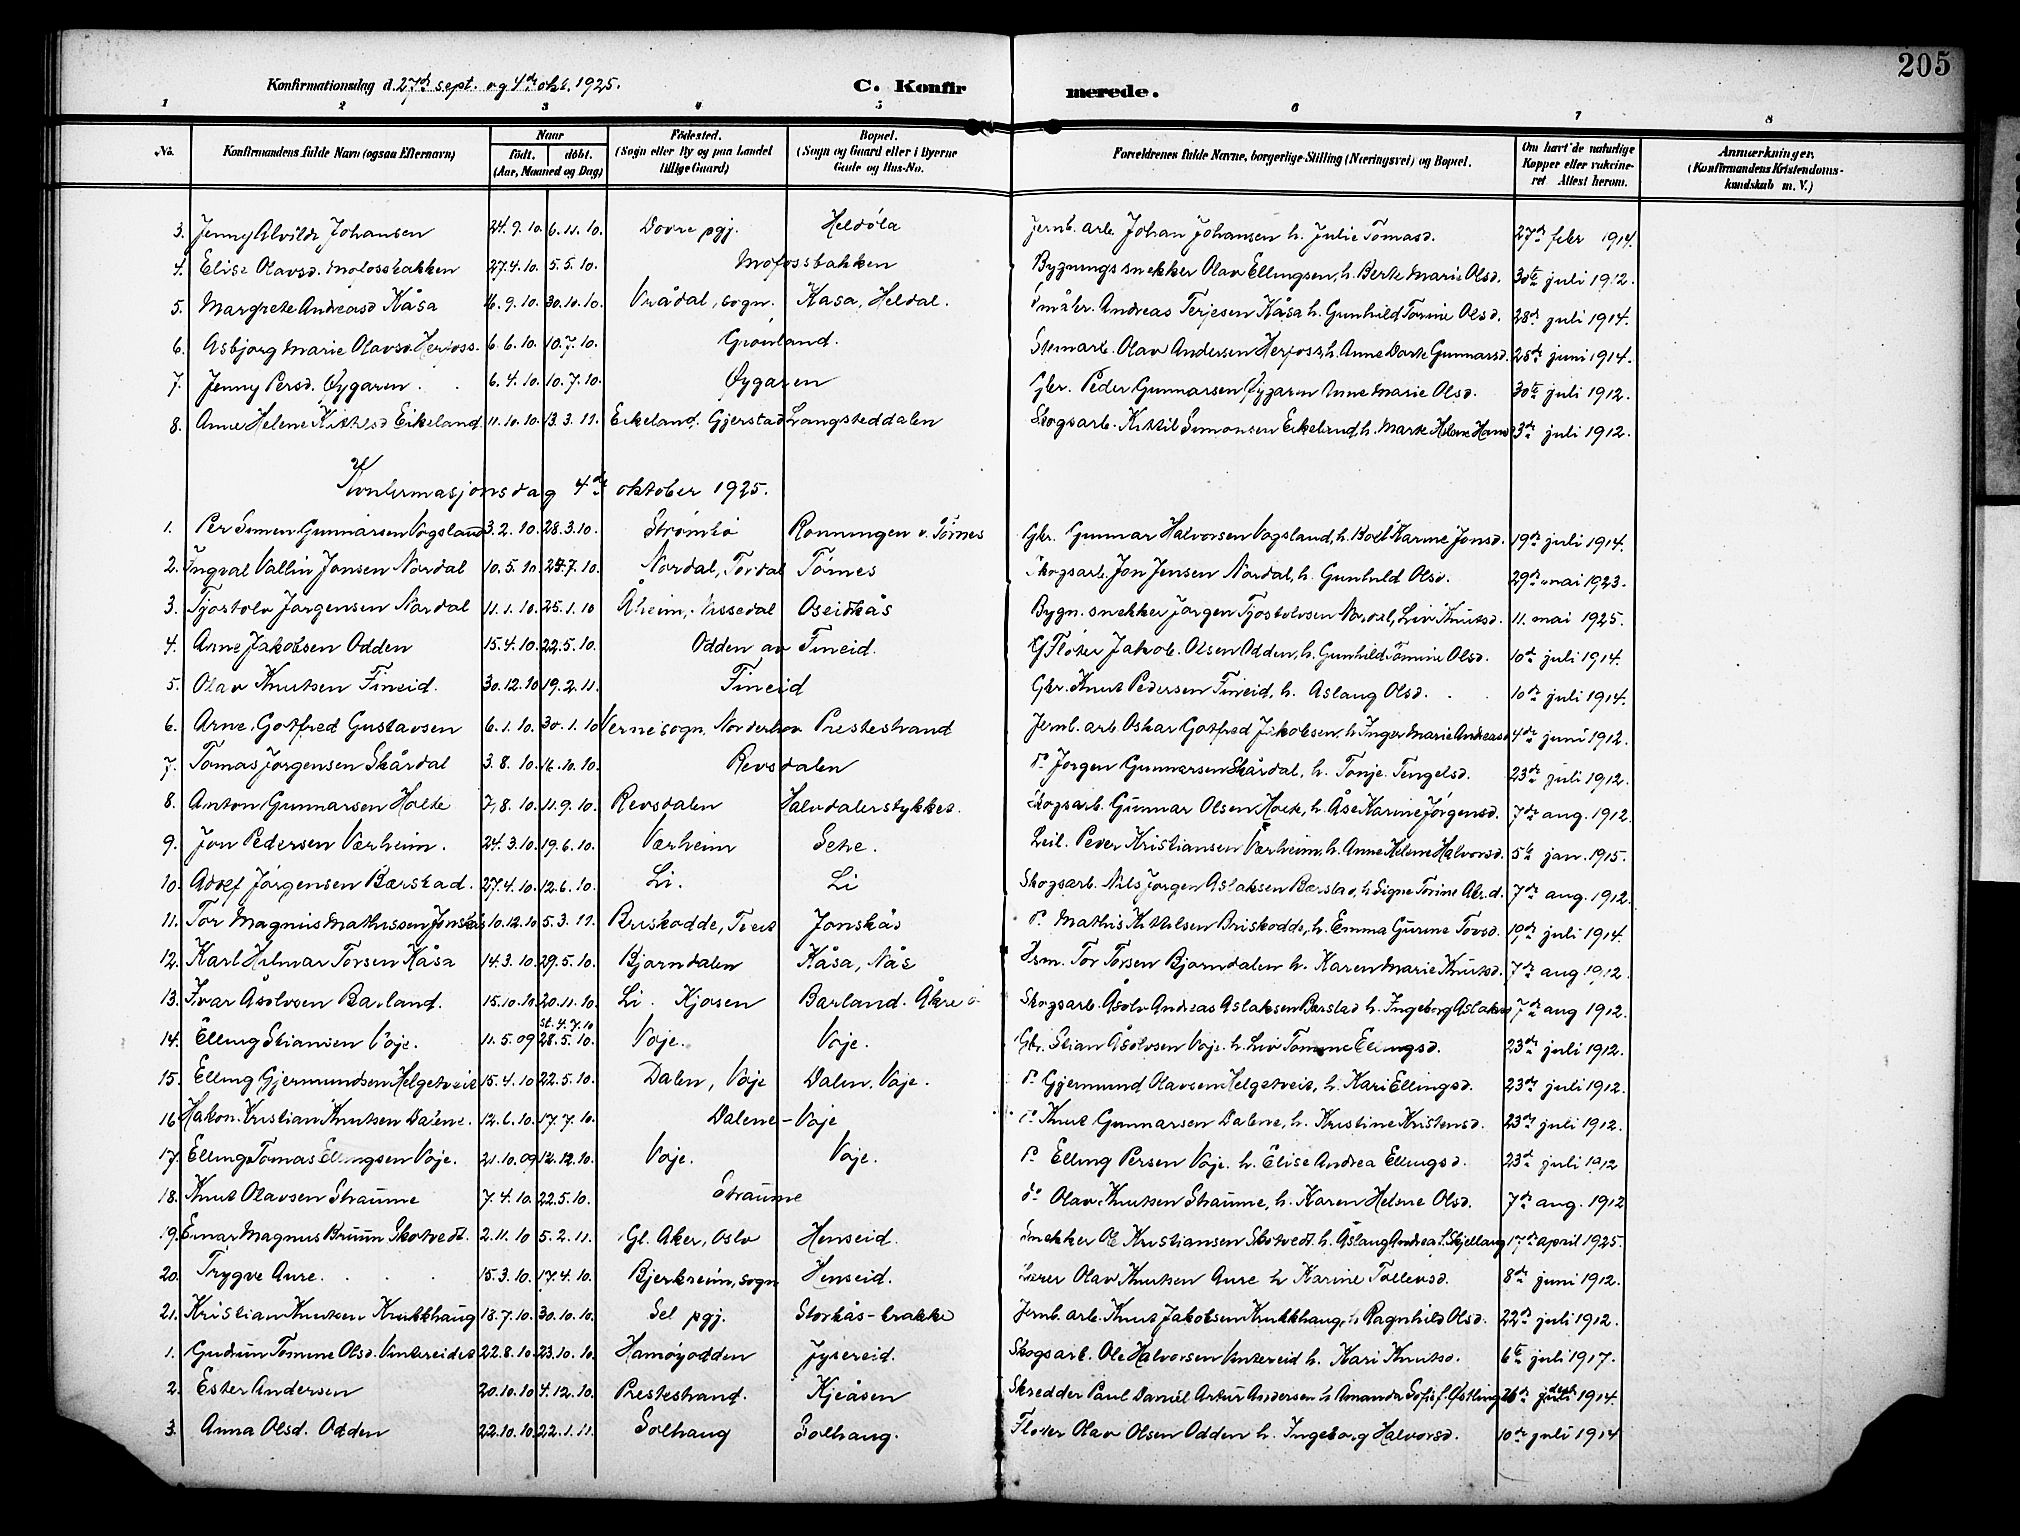 205
Konfirmationsdag d. 27de sept. og 4de okt. 1925.
C. Konfirmerede.
1 2 3 4 5 6 7 8
No. Konfirmandens fulde Navn (ogsaa Efternavn) Naar födt. döbt. (Aar, Maaned og Dag) Födested. (Sogn eller By og paa Landet tillige Gaard) Bopæl. (Sogn og Gaard eller i Byerne Gade og Hus-No. Forældrenes fulde Navne, borgerlige Stilling (Næringsvei) og Bopæl. Om havt de naturlige Kopper eller vakcineret Attest herom. Anmærkninger. (Konfirmandens Kristendomskundskab m. V.)
3. Jenny Alvilde Johansen 24.9.10. 6.11.10. Dovre pgj. Heldøla Jernb. arb. Johan Johansen h. Julie Tomasd. 27de febr 1914.
4. Elise Olavsd. Mofossbakken 27.4.10. 5.5.10. Mofossbakken Bygningssnekker Olav Ellingsen, h. Berte Marie Olsd. 30te juli 1912.
5. Margrete Andreasd Kåsa 16.9.10. 30.10.10. Vrådal, sogn. Kasa, Heldal. Småbr. Andreas Terjesen Kåsa h. Gunhild Torine Olsd. 28de juli 1914.
6. Asbjørg Marie Olavsd. Herfoss. 6.6.10. 10.7.10. Grønland. Stenarb. Olav Andersen Herfoss h. Anne Dorte Gunnarsd. 25de juni 1914.
7. Jenny Persd. Øygaren. 6.4.10. 10.7.10. Øygaren Gbr. Peder Gunnarsen Øygaren Anne Marie Olsd. 30te juli 1912.
8. Anne Helene Kittilsd Eikeland 11.10.10. 13.3.11. Eikeland. Gjerstad Langsteddalen Skogsarb. Kittil Simonsen Eikeland, h. Marte Helene Hansd 3de juli 1912.
Konfirmasjonsdag 4de oktober 1925.
1. Per Simen Gunnarsen Vogsland 3.2.10. 28.3.10. Strømbø Rønningen v. Tørnes Gbr. Gunnar Halvorsen Vogsland, h. Karine Jonsd. 19de juli 1914.
2. Ingval Vallin Jonsen Nordal 10.5.10. 24.7.10. Nordal, Tørdal Tørnes Skogsarb. Jon Jensen Nordal, h. Gunhild Olsd. 29de mai 1923.
3. Tjostolv Jørgensen Nordal 11.1.10. 25.1.10 Åheim, Nissedal Oseidkås Bygn. snekker Jørgen Tjostolvsen Nordal, Liv Knutsd. 11. mai 1925.
4. Arne Jakobsen Odden 15.4.10. 22.5.10. Odden av Fineid. Fløter Jakob Olsen Odden, h. Gunhild Tomine Olsd. 10de juli 1914.
5. Olav Knutsen Fineid. 30.12.10 19.2.11. Fineid Gbr. Knut Pedersen Fineid, h. Aslaug Olsd. 10de juli 1914.
6. Arne Gotfred Gustavsen 6.1.10. 30.1.10 Verne sogn. Norderhov Prestestrand Jernb. arb Oskar Gotfred Jakobsen, h Inger Marie Andreasd 4de juni 1912.
7. Tomas Jørgensen Skårdal 3.8.10. 16.10.10. Revsdalen Do Jørgen Gunnarsen Skårdal, h. Tonje Tengelsd. 23de juli 1912.
8. Anton Gunnarsen Holte 7.8.10. 11.9.10. Revsdalen Halvdalerstykket. Skogsarb. Gunnar Olsen Holte, h. Åse Karine Jørgensd. 7de aug. 1912.
9. Jon Pedersen Værheim. 24.3.10. 19.6.10. Værheim Seke. Leil. Peder Kristiansen Værheim, h. Anne Helene Halvorsd. 5te jan. 1915.
10. Adolf Jørgensen Bærstad. 27.4.10. 12.6.10. Li. Li Skogsarb. Nils Jørgen Aslaksen Bærstad, h Signe Torine 7de aug. 1912.
11. Tor Magnus Mathissen Jonskås 10.12.10. 5.3.11. Briskodde, Tveit Jonskås Do Mathis Kittilsen Briskodde, h. Emma Gurine Tovsd. 19de juli 1914.
12. Karl Hilmar Torsen Kåsa 14.3.10. 29.5.10. Bjørndalen Kåsa, Nås Hsm. Tor Torsen Bjørndalen h. Karen Marie Knutsd. 7de aug 1912.
13. Ivar Åsolvsen Barland. 15.10.10. 20.11.10. Li. Kjosen Barland. Åkre ø Skogsarb. Åsolv Andreas Aslaksen Bærstad h. Ingeborg Aslaksd 7de aug 1912.
14. Elling Stiansen Voje. 11.5.09 st. 4.7.10 28.5.10. Voje. Voje. Gbr. Stian Åsolvsen Voje. h. Liv Tomine Ellingsd. 23de juli 1912.
15. Elling Gjermundsen Helgetveit 15.4.10 22.5.10. Dalen, Voje Dalen, Voje. Do Gjermund Olavsen Helgetveit, h. Kari Ellingsd. 23de juli 1912.
16. Håkon Kristian Knutsen Dalene. 12.6.10. 17.7.10. Dalene - Voje Do Knut Gunnarsen Dalene, h. Kristine Kristensd. 23de juli 1912.
17. Elling Tomas Ellingsen Voje. 21.10.09 12.12.10. Voje. Voje. Do Elling Persen Voje. h. Elise Andrea Ellingsd. 23de juli 1912
18. Knut Olavsen Straume 7.4.10. 22.5.10. Straume do Olav Knutsen Straume, h. Karen Helene Olsd. 7de aug. 1912
19. Einar Magnus Bruun Skotvedt. 2.11.10 5.2.11. Gl. Aker, Oslo Henseid. Snekker Ole Kristiansen Skotvedt. h. Åslaug Andrea f. Skjellaug 17de april 1925.
20. Trygve Aure. 15.3.10. 17.4.10. Bjerkreim, sogn Henseid. Lærer Olav Knutsen Aure h Karine Tollevsd. 8de juni 1912.
21. Kristian Knutsen Krukkhaug 18.7.10. 30.10.10. Sel pgj. Storkås-brakke Jernb. arb. Knut Jakobsen Krukkhaug, h Ragnhild Olsd. 22de juli 1912.
1. Gudrun Tomine Olsd. Vintereidet 22.8.10. 23.10.10. Hamøyodden Jysereid. Skogsarb. Ole Halvorsen Vintereid h. Kari Knutsd. 6te juli 1917.
2. Ester Andersen 20.10.10 4.12.10. Prestestrand. Kjeåsen Skredder Paul Daniel Artur Andersen h Amanda Sofie f. Østling 26de juli 1914.
3. Anna Olsd. Odden 22.10.10. 22.1.11. Solhaug Solhaug. Fløter Olav Olsen Odden h. Ingeborg Halvorsd. 10de juli 1914